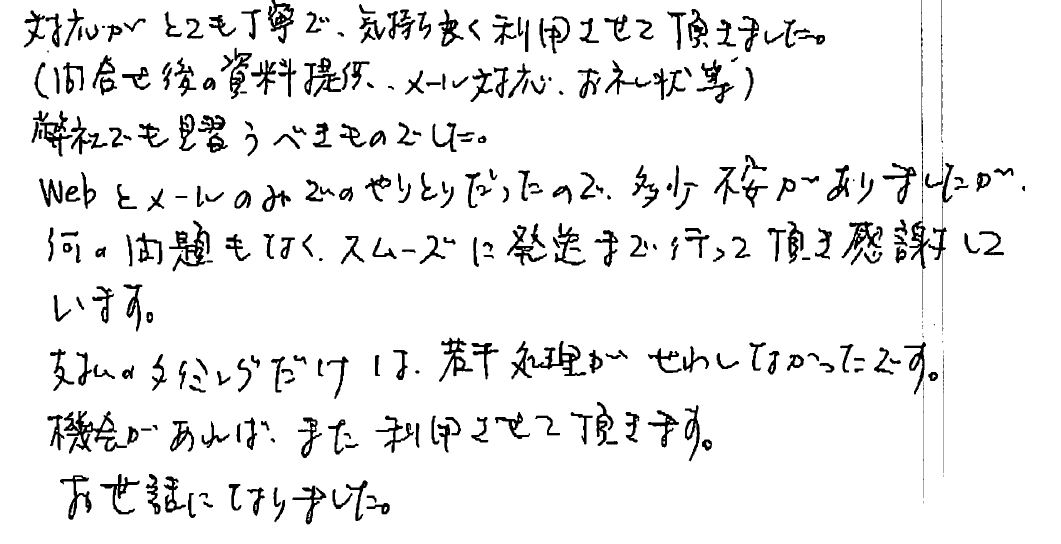 対応がとても丁寧で、気持ち良く利用させて頂きました。
(問合せ後の資料提供、メール対応、お礼状等)
弊社でも見習うべきものでした。
Webとメールのみでのやりとりだったので、多少不安がありましたが、
何の問題もなく、スムーズに発送まで行って頂き感謝して
います。
支払いのタイミングだけは、若干処理がせわしなかったです。
機会があれば、また利用させて頂きます。
お世話になりました。